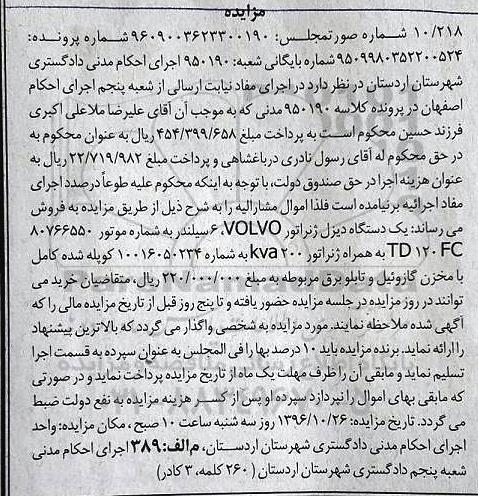 مزایده
۱۰/۲۱۸ شماره صورتمجلس: ۹۶۰۹۰۰۳۶۲۳۳۰۰۱۹۰ شماره پرونده:
۹۵۰۹۹۸۰۳۵۲۲۰۰۵۲۴ شماره بایگانی شعبه: ۹۵۰۱۹۰ اجرای احکام مدنی دادگستری
شهرستان اردستان در نظر دارد در اجرای مفاد نیابت ارسالی از شعبه پنجم اجرای احکام
اصفهان در پرونده کلاسه ۹۵۰۱۹۰ مدنی که به موجب آن آقای علیرضا ملاعلی اکبری
فرزند حسین محکوم است به پرداخت مبلغ ۴۵۴/۳۹۹/۶۵۸ ریال به عنوان محکوم به
در حق محکوم له آقای رسول نادری درباغشاهی و پرداخت مبلغ ۲۲/۷۱۹/۹۸۲ ریال به
عنوان هزینه اجرا در حق صندوق دولت، با توجه به اینکه محکوم علیه طوعاً درصدد اجرای
مفاد اجرائیه برنیامده است فلذا اموال مشارالیه را به شرح ذیل از طریق مزایده به فروش
می رساند: یک دستگاه دیزل ژنراتور VOLVO، ۶ سیلندر به شماره موتور ۸۰۷۶۶۵۵۰
TD ۱۲۰ FC به همراه ژنراتور ۲۰۰ kva به شماره ۱۰۰۱۶۰۵۰۲۳۴ کوپله شده کامل
با مخزن گازوئیل و تابلو برق مربوطه به مبلغ ۲۲۰/۰۰۰/۰۰۰ ریال، متقاضیان خرید می
توانند در روز مزایده در جلسه مزایده حضور یافته و تا پنج روز قبل از تاریخ مزایده مالی را که
آگهی شده ملاحظه نمایند. مورد مزایده به شخصی واگذار می گردد که بالاترین پیشنهاد
را ارائه نماید. برنده مزایده باید ۱۰ درصد بها را فی المجلس به عنوان سپرده به قسمت اجرا
تسلیم نماید و مابقی آن را ظرف مهلت یک ماه از تاریخ مزایده پرداخت نماید و در صورتی
که مابقی بهای اموال را نپردازد سپرده او پس از کسر هزینه مزایده به نفع دولت ضبط
می گردد. تاریخ مزایده: ۱۳۹۶/۱۰/۲۶ روز سه شنبه ساعت ۱۰ صبح، مکان مزایده: واحد
اجرای احکام مدنی دادگستری شهرستان اردستان، م الف: ۳۸۹ اجرای احکام مدنی
شعبه پنجم دادگستری شهرستان اردستان (۲۶۰ کلمه، ۳ کادر)